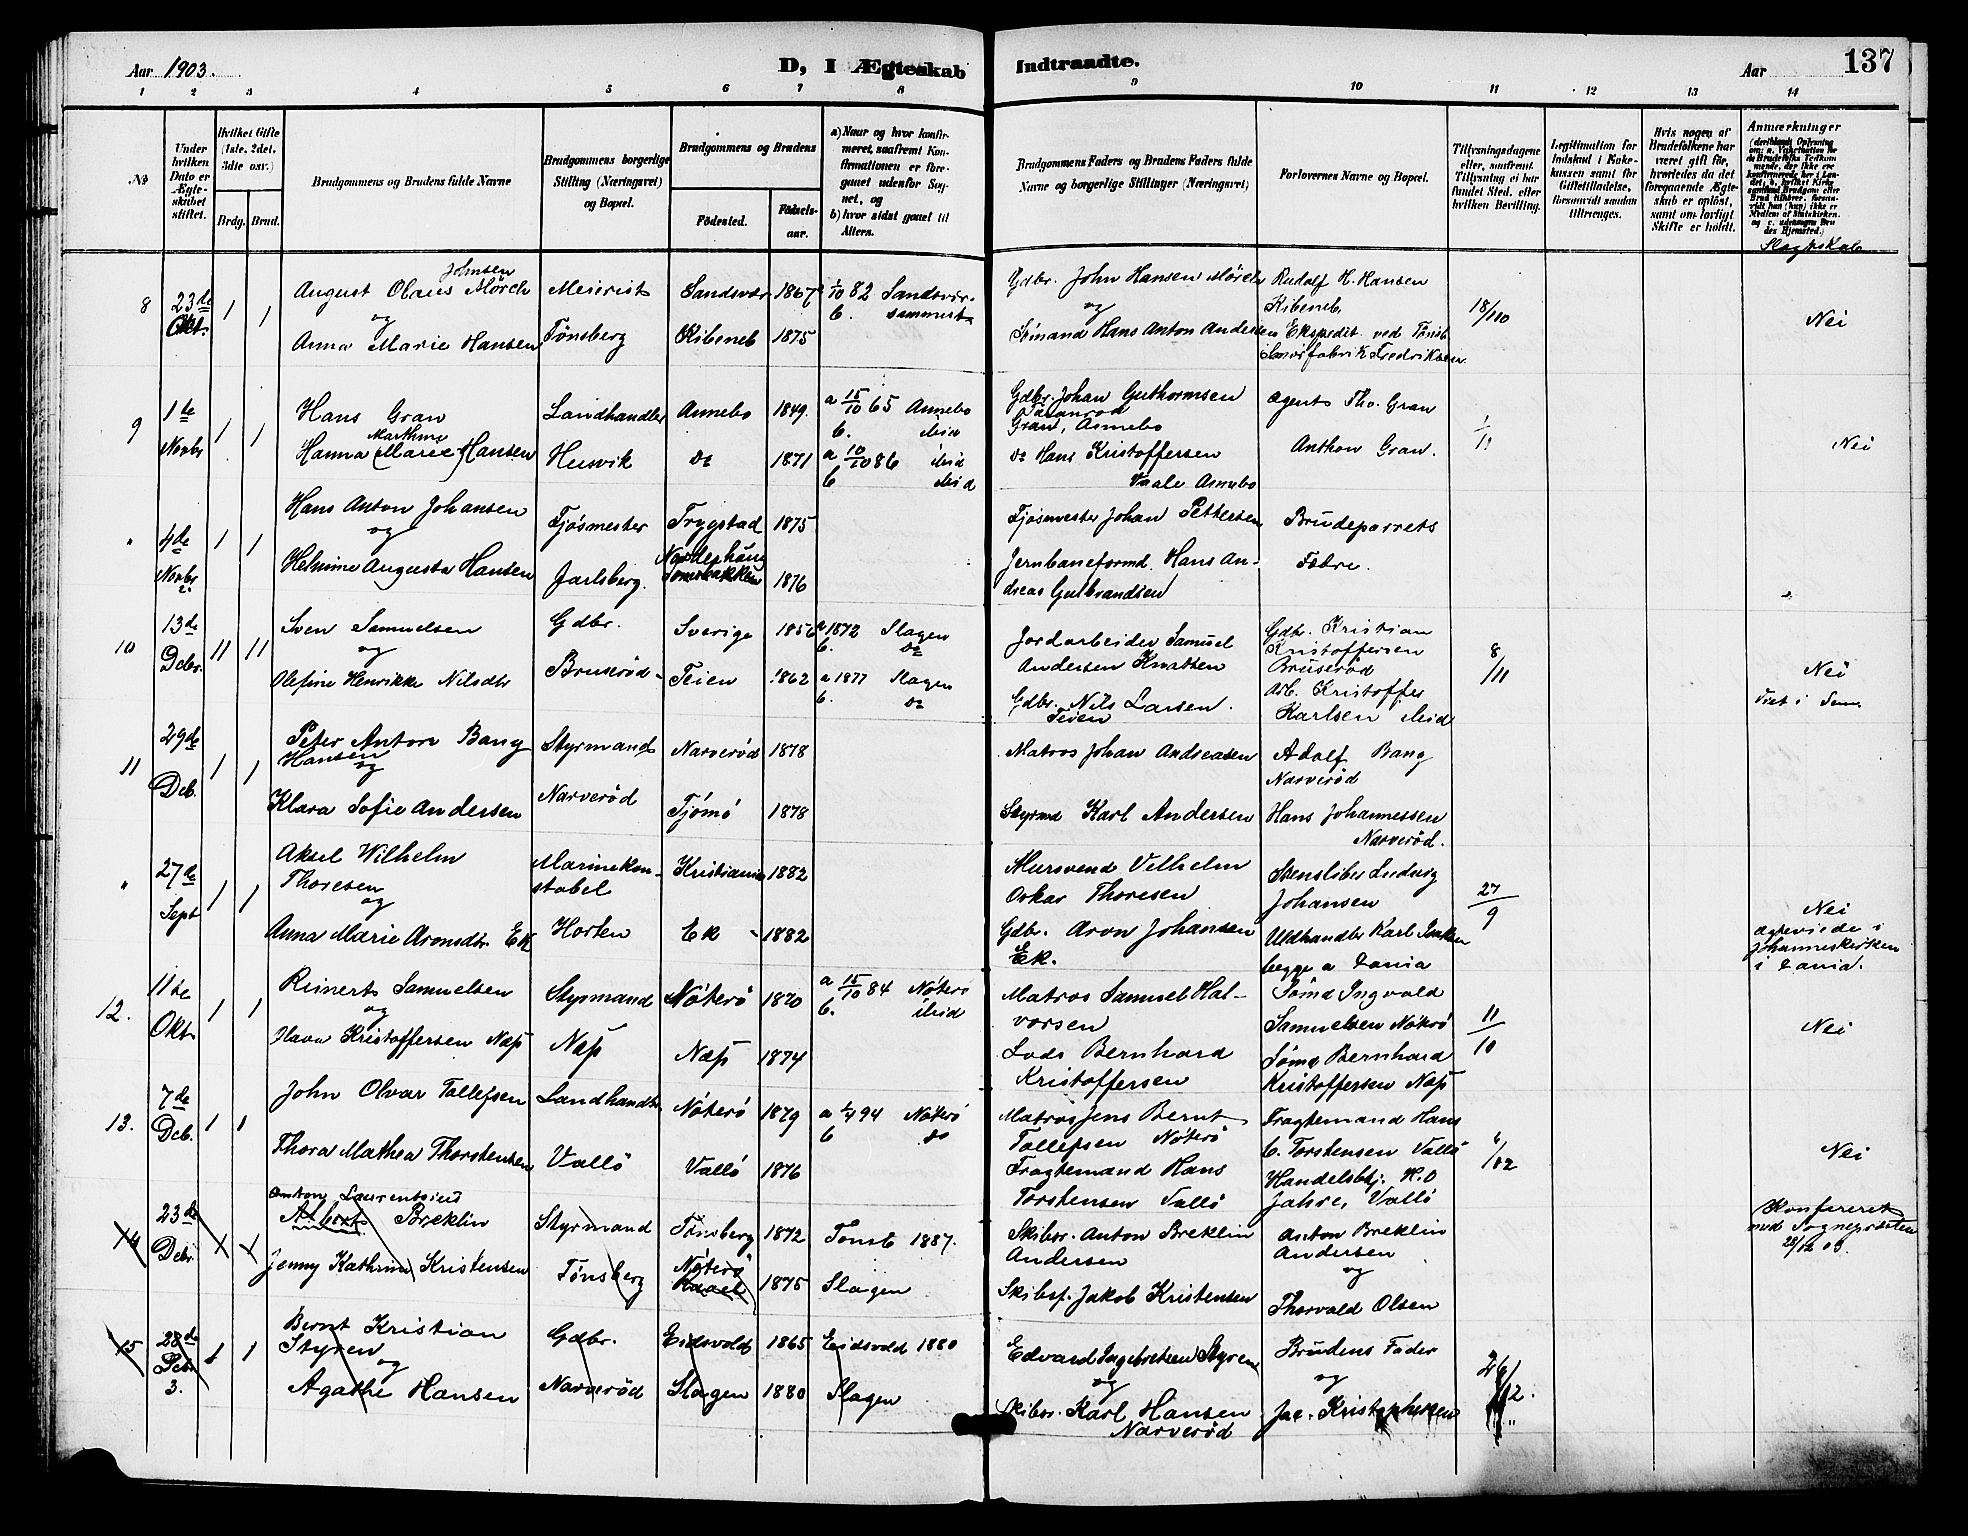 Aar 1903.
D, I Ægteskab
Indtraadte.
Aar
137
1 2 3 4 5 6 7 8 9 10 11 12 13 14
No
Under hvilken Dato er Ægteskabet stiftet.
Hvilket Gifte (1ste, 2det, 3die osv.)
Brdg. Brud.
Brudgommens og Brudens fulde Navne
Brudgommens borgerlige Stilling (Næringsvei) og Bopæl.
Brudgommens og Brudens
Födested.
Födselsaar.
a) Naar og hvor konfirmeret, saafremt Konfirmationen er foregaaet udenfor Sognet, og
b) hvor sidst gaaet til Alters.
Brudgommens Faders og Brudens Faders fulde Navne og borgerlige Stillinger (Næringsvei)
Forlovernes Navne og Bopæl.
Tillysningsdagene eller, saafremt Tillysning ei har fundet Sted, efter hvilken Bevilling.
Legitimation for Indskud i Enkekassen samt for Giftetilladelse, forsaavidt saadan tiltrænges.
Hvis nogen af Brudefolkene har været gift før, hvorledes da det foregaaende Ægteskab er opløst, samt om lovligt Skifte er holdt.
Anmærkninger
Slægtskab
8
23de Okt.
1 1
August Olaus Johnsen Mörch
og
Anna Marie Hansen
Meierist
Tønsberg
Sandsvær 1867
Kibeneb 1875
1/10 82 Sandsvær.
b. sammest.
Gdbr. John Hansen Mörch
og
Sömand Hans Anton Andersen
Rudolf H. Hansen
Kibeneb
Ekspedit. ved Tönsb.
Smörfabrik Fredriksen
18/10
Nei
9
1ste Novbr
1 1
Hans Gran
Hanna Marthine (Marie) Hansen
Landhandler
Husvik
Aunebo 1849.
do 1871
a 15/10 65 Aunebo
b. ibid
a 10/10 86 ibid
b ibid
Gdbr. Johan Guthormsen
Gran, Asnebo
do Hans Kristoffersen
Vaale Asnebo
Agent Tho. Gran
Anthon Gran.
1/11
Nei
"
4de Novbr
1 1
Hans Anton Johansen
og
Helmine Augusta Hansen
Fjösmester
Jarlsberg.
Trygstad 1875
Norderhaug 1876
Fjösmester Johan Pettersen
Jernbaneformd. Hans Andreas Gulbrandsen
Brudeparrets
Fædre.
10
13de Debr.
11 11
Sven Samuelsen
og
Olefine Henrikke Nilsdtr
Gdbr.
Bruserød
Sverige 1856
Teien 1862
a 1872 Slagen
b. do
a 1877 Slagen
b. do
Jordarbeider Samuel
Andersen Knatten
Gdbr. Nils Larsen.
Teien
Gdb. Kristian
Kristoffersen
Bruserød
Arb. Kristoffer
Karlsen ibid
8/11
Nei
Viet i Sem
11
29de Deb.
1 1
Peter Anton Bang
Hansen
og
Klara Sofie Andersen
Styrmand
Narverød
Narverød 1878
Tjömö 1878
Matros Johan Andreasen
Styrmd Karl Andersen
Adolf Bang
Narverød
Hans Johannessen
Narverød.
"
27de Sept
1 1
Aksel Wilhelm
Thoresen
og
Anna Marie Aronsdtr. Ek
Marinekonstabel
Horten
Kristiania 1882
Ek 1882
Mursvend Vilhelm
Oskar Thoresen
Gdbr. Aron Johansen
Ek.
Stensliber Ludvig
Johansen
Uldhandler Karl
begge a Xania
27/9
Nei
ægteviede i
Johanneskirken
i Xania.
12.
11te Okt.
1 1
Reinert Samuelsen
og
Olava Kristoffersen Næs
Styrmand
Næs
Nöterö 1870
Næs 1874
a 15/10 84 Nöterö
b. ibid
Matros Samuel Halvorsen
Lods Bernhard
Kristoffersen
Sömd Ingvald
Samuelsen Nöterö
Sömd Bernhard
Kristoffersen Næs
11/10
Nei
13.
7de Deb.
1 1
John Olvar Tollefsen
Thora Mathea Thorstensen
Landhandler
Vallö
Nöterö 1879
Vallö 1876
a 94 Nöterö
b do
Matros Jens Bernt
Tollefsen Nöterö
Fragtemand Hans
Torstensen Vallö
Fragtemand Hans
C. Torstensen Vallö
Handelsbtj. H.O
Jahre, Vallö
6/12
Nei
14
23de Debr.
1 1
Anton Laurentsius
Albert Breklin
Jenny Kathrine Kristensen
Styrmand
Tönsberg
Tönsberg 1872
Nöterö 1875
Tønsb 1887.
Slagen
Skibsr. Anton Breklin
Andersen
Skibsf. Jakob Kristensen
Anton Breklin
Andersen
og
Thorvald Olsen
Konfereret
med Sognepresten
28/12 03.
15
28de Debr
3.
1 1
Bernt Kristian
Styren
og
Agathe Hansen
Gdbr.
Narverød
Eidsvold 1865
Slagen 1880
Eidsvold 1880
Slagen
Edvard Ingebretsen Styren
og
Skibsr. Karl Hansen
Narverød
Brudens Fader
og
Jac. Kristophersen